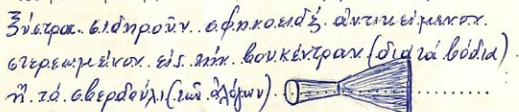 ξύστρα. σιδηροῦν. σφηκοειδές ἀντικείμενον.
στερεωμένον. εἰς. τήν. βουκέντραν. (διά τά βόδια)
ἤ. τό. σβερδούλι (τῶν ἀλόγων)